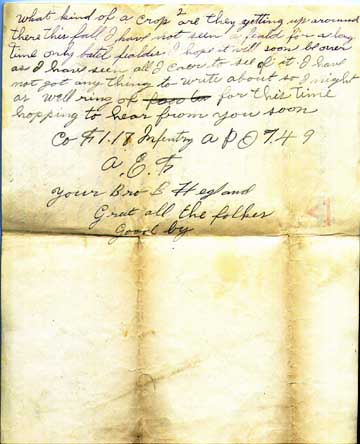 What kind of a crop are they getting up around
there this fall I have not seen a feald for a long
time only batel fealds. I hope it will soon be over
as I have seen all I care to see of it I have
not got any thing to write about so I might
as well ring of for this time
hopping to hear from you soon
Co F. 18 Infentry A P O 7 4 9
A. E. F
Your Bro B Hegland
Grut all the folkes
Good by